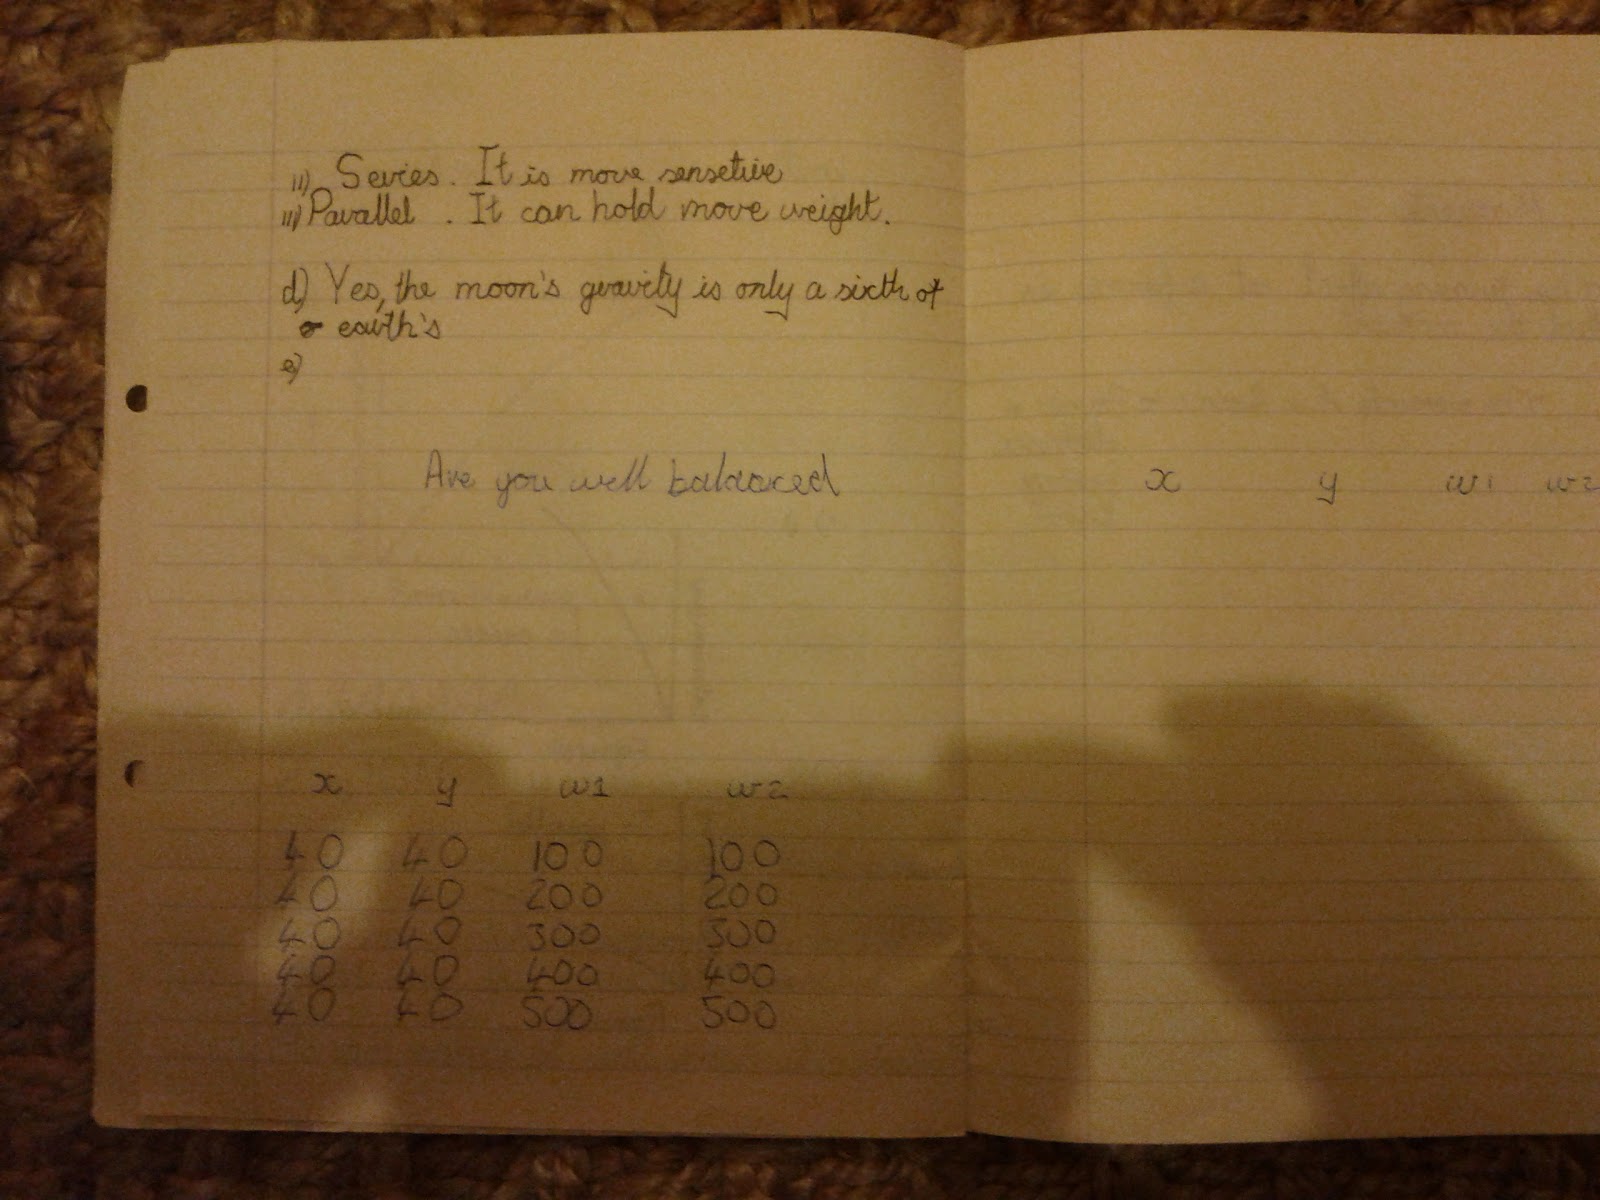 ii) Series. It is more sensetive
iii) Parallel. It can hold more weight.
d) Yes, the moon's gravity is only a sixth of
earth's
e)
Are you well balanced
x y w1 w2
40 40 100 100
40 40 200 200
40 40 300 300
40 40 400 400
40 40 500 500
x y w1 w2